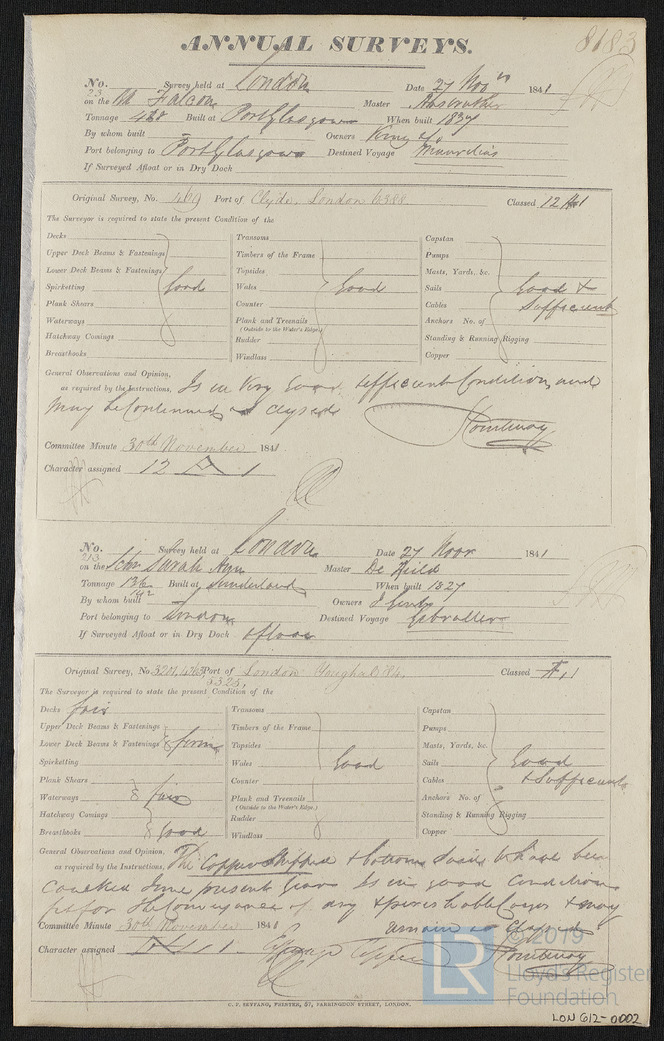 ANNUAL SURVEYS.
8183
No. 23 Survey held at London Date 27 Nov 1841
on the Bk Falcon Master
Tonnage 428 Built at Port Glasgow When built 1837
By whom built Owners King &
Port belonging to Port Glasgow Destined Voyage Mauritius
If Surveyed Afloat or in Dry Dock
Original Survey, No. 469 Port of Clyde, London 6388. Classed 12 A1
The Surveyor is required to state the present Condition of the
Decks Transoms Capstan
Upper Deck Beams & Fastenings Timbers of the Frame Pumps
Lower Deck Beams & Fastenings Topsides Masts, Yards, &c.
Spirketting Good Wales Good Sails Good &
Plank Shears Counter Cables Sufficient
Waterways Plank and Treenails Anchors No. of
(Outside to the Water's Edge.)
Hatchway Comings Rudder Standing & Running Rigging
Breasthooks Windlass Copper
General Observations and Opinion,
as required by the Instructions, Is in Very Good & efficient Condition, and
may be Continued as Classed
Committee Minute 30th November 1841
Character assigned 12 A 1
No. 213 Survey held at London Date 27 Novr 1841
on the Schr Sarah Ann Master
Tonnage 136 Built at Sunderland When built 1827
By whom built Owners
Port belonging to London Destined Voyage Gibralter
If Surveyed Afloat or in Dry Dock afloat
Original Survey, No. 3201, Port of London Youghal
5325, Classed Æ 1
The Surveyor is required to state the present Condition of the
Decks fair Transoms Capstan
Upper Deck Beams & Fastenings Timbers of the Frame Pumps
Lower Deck Beams & Fastenings firm Topsides Masts, Yards, &c.
Spirketting Wales Good Sails Good
Plank Shears Counter Cables & Sufficient
Waterways fair Plank and Treenails Anchors No. of
(Outside to the Water's Edge.)
Hatchway Comings Rudder Standing & Running Rigging
Breasthooks good Windlass Copper
General Observations and Opinion,
as required by the Instructions, The Copper Stripped & bottom said to have been
Caulked present year Is in good Condition
fit for the Conveyance of dry & perishable Cargoes & may
Committee Minute 30th November 1841 remain as Classed
Character assigned Æ 1 George
C. F. SEYFANG, PRINTER, 57, FARRINGDON STREET, LONDON.
LR © 2019
Lloyd's Register
Foundation
LON 612-0002